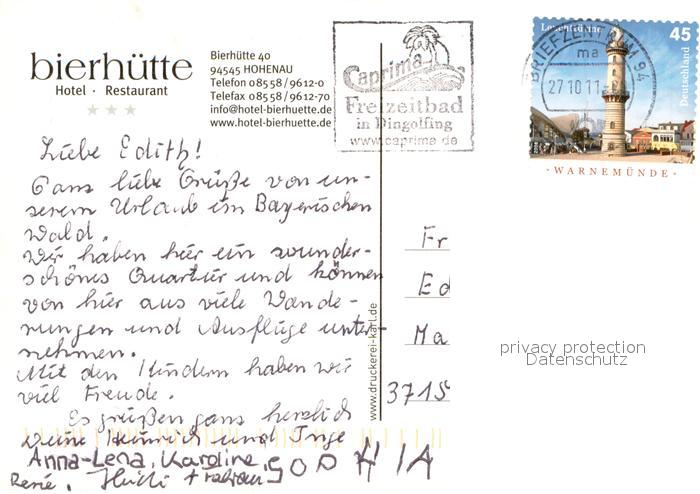 bierhütte
Hotel · Restaurant
Bierhütte 40
94545 HOHENAU
Telefon 0 85 58 / 96 12-0
Telefax 0 85 58 / 96 12-70
info@hotel-bierhuette.de
www.hotel-bierhuette.de
Caprima
Freizeitbad
in Dingolfing
www.caprima.de
BRIEFZENTRUM 94
ma
27.10.11
Leuchttürme
45
Deutschland
· WARNEMÜNDE ·
Liebe Edith!
Ganz liebe Grüße von un-
serem Urlaub im Bayerischen
Wald.
Wir haben hier ein wunder-
schönes Quartier und können
von hier aus viele Wande-
rungen und Ausflüge unter-
nehmen.
Mit den Kindern haben wir
viel Freude.
Es grüßen ganz herzlich
Deine Heinrich und Inge
Anna-Lena, Karoline, SOPHIA
René,
www.druckerei-karl.de
Fr
Ed
Ma
3715
privacy protection
Datenschutz